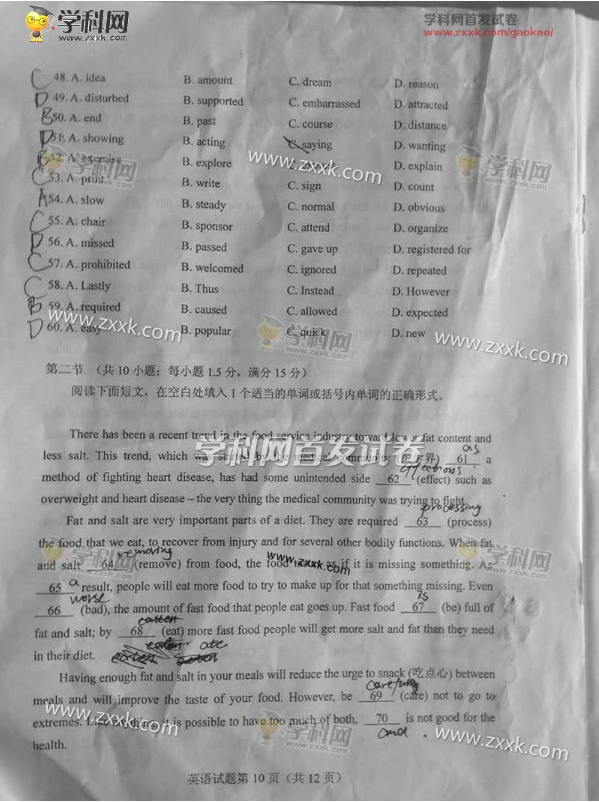 学科网 学科网首发试卷
www.zxxk.com www.zxxk.com/gaokao/
C 48. A. idea B. amount C. dream D. reason
D 49. A. disturbed B. supported C. embarrassed D. attracted
B 50. A. end B. past C. course D. distance
D 51. A. showing B. acting C. saying D. wanting
B 52. A. exercise B. explore D. explain
C 53. A. print B. write C. sign D. count
A 54. A. slow B. steady C. normal D. obvious
C 55. A. chair B. sponsor C. attend D. organize
D 56. A. missed B. passed C. gave up D. registered for
C 57. A. prohibited B. welcomed C. ignored D. repeated
C 58. A. Lastly B. Thus C. Instead D. However
B 59. A. required B. caused C. allowed D. expected
D 60. A. easy B. popular C. quick D. new
第二节 （共 10 小题；每小题 1.5 分，满分 15 分）
阅读下面短文，在空白处填入 1 个适当的单词或括号内单词的正确形式。
There has been a recent trend in the food service industry toward lower fat content and
less salt. This trend, which was started by the medical community (医学界) 61 as a
method of fighting heart disease, has had some unintended side 62 (effect) such as
overweight and heart disease – the very thing the medical community was trying to fight.
Fat and salt are very important parts of a diet. They are required 63 processing (process)
the food that we eat, to recover from injury and for several other bodily functions. When fat
and salt 64 removing (remove) from food, the food as if it is missing something. As
65 a result, people will eat more food to try to make up for that something missing. Even
66 worse (bad), the amount of fast food that people eat goes up. Fast food 67 is (be) full of
fat and salt; by 68 (eat) more fast food people will get more salt and fat than they need
in their diet. ate
Having enough fat and salt in your meals will reduce the urge to snack (吃点心) between
meals and will improve the taste of your food. However, be 69 (care) not to go to
extremes. it is possible to have too much of both, 70 and is not good for the
health.
英语试题第 10 页（共 12 页）
学科网
www.zxxk.com
学科网首发试卷
www.zxxk.com